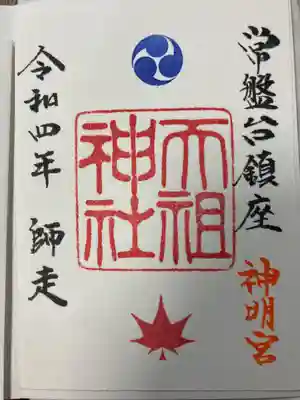 常盤台鎮座
神明宮
天祖
神社
令和四年 師走